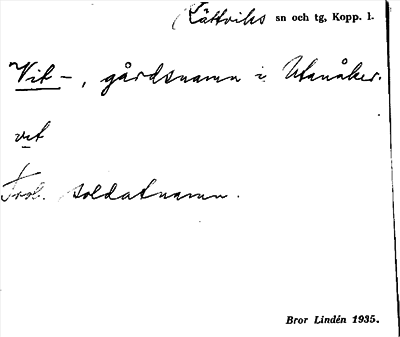 Rättviks sn och tg, Kopp. l.
Vit-, gårdsnamn i Utanåker.
vit
Trol. soldatnamn.
Bror Lindén 1935.